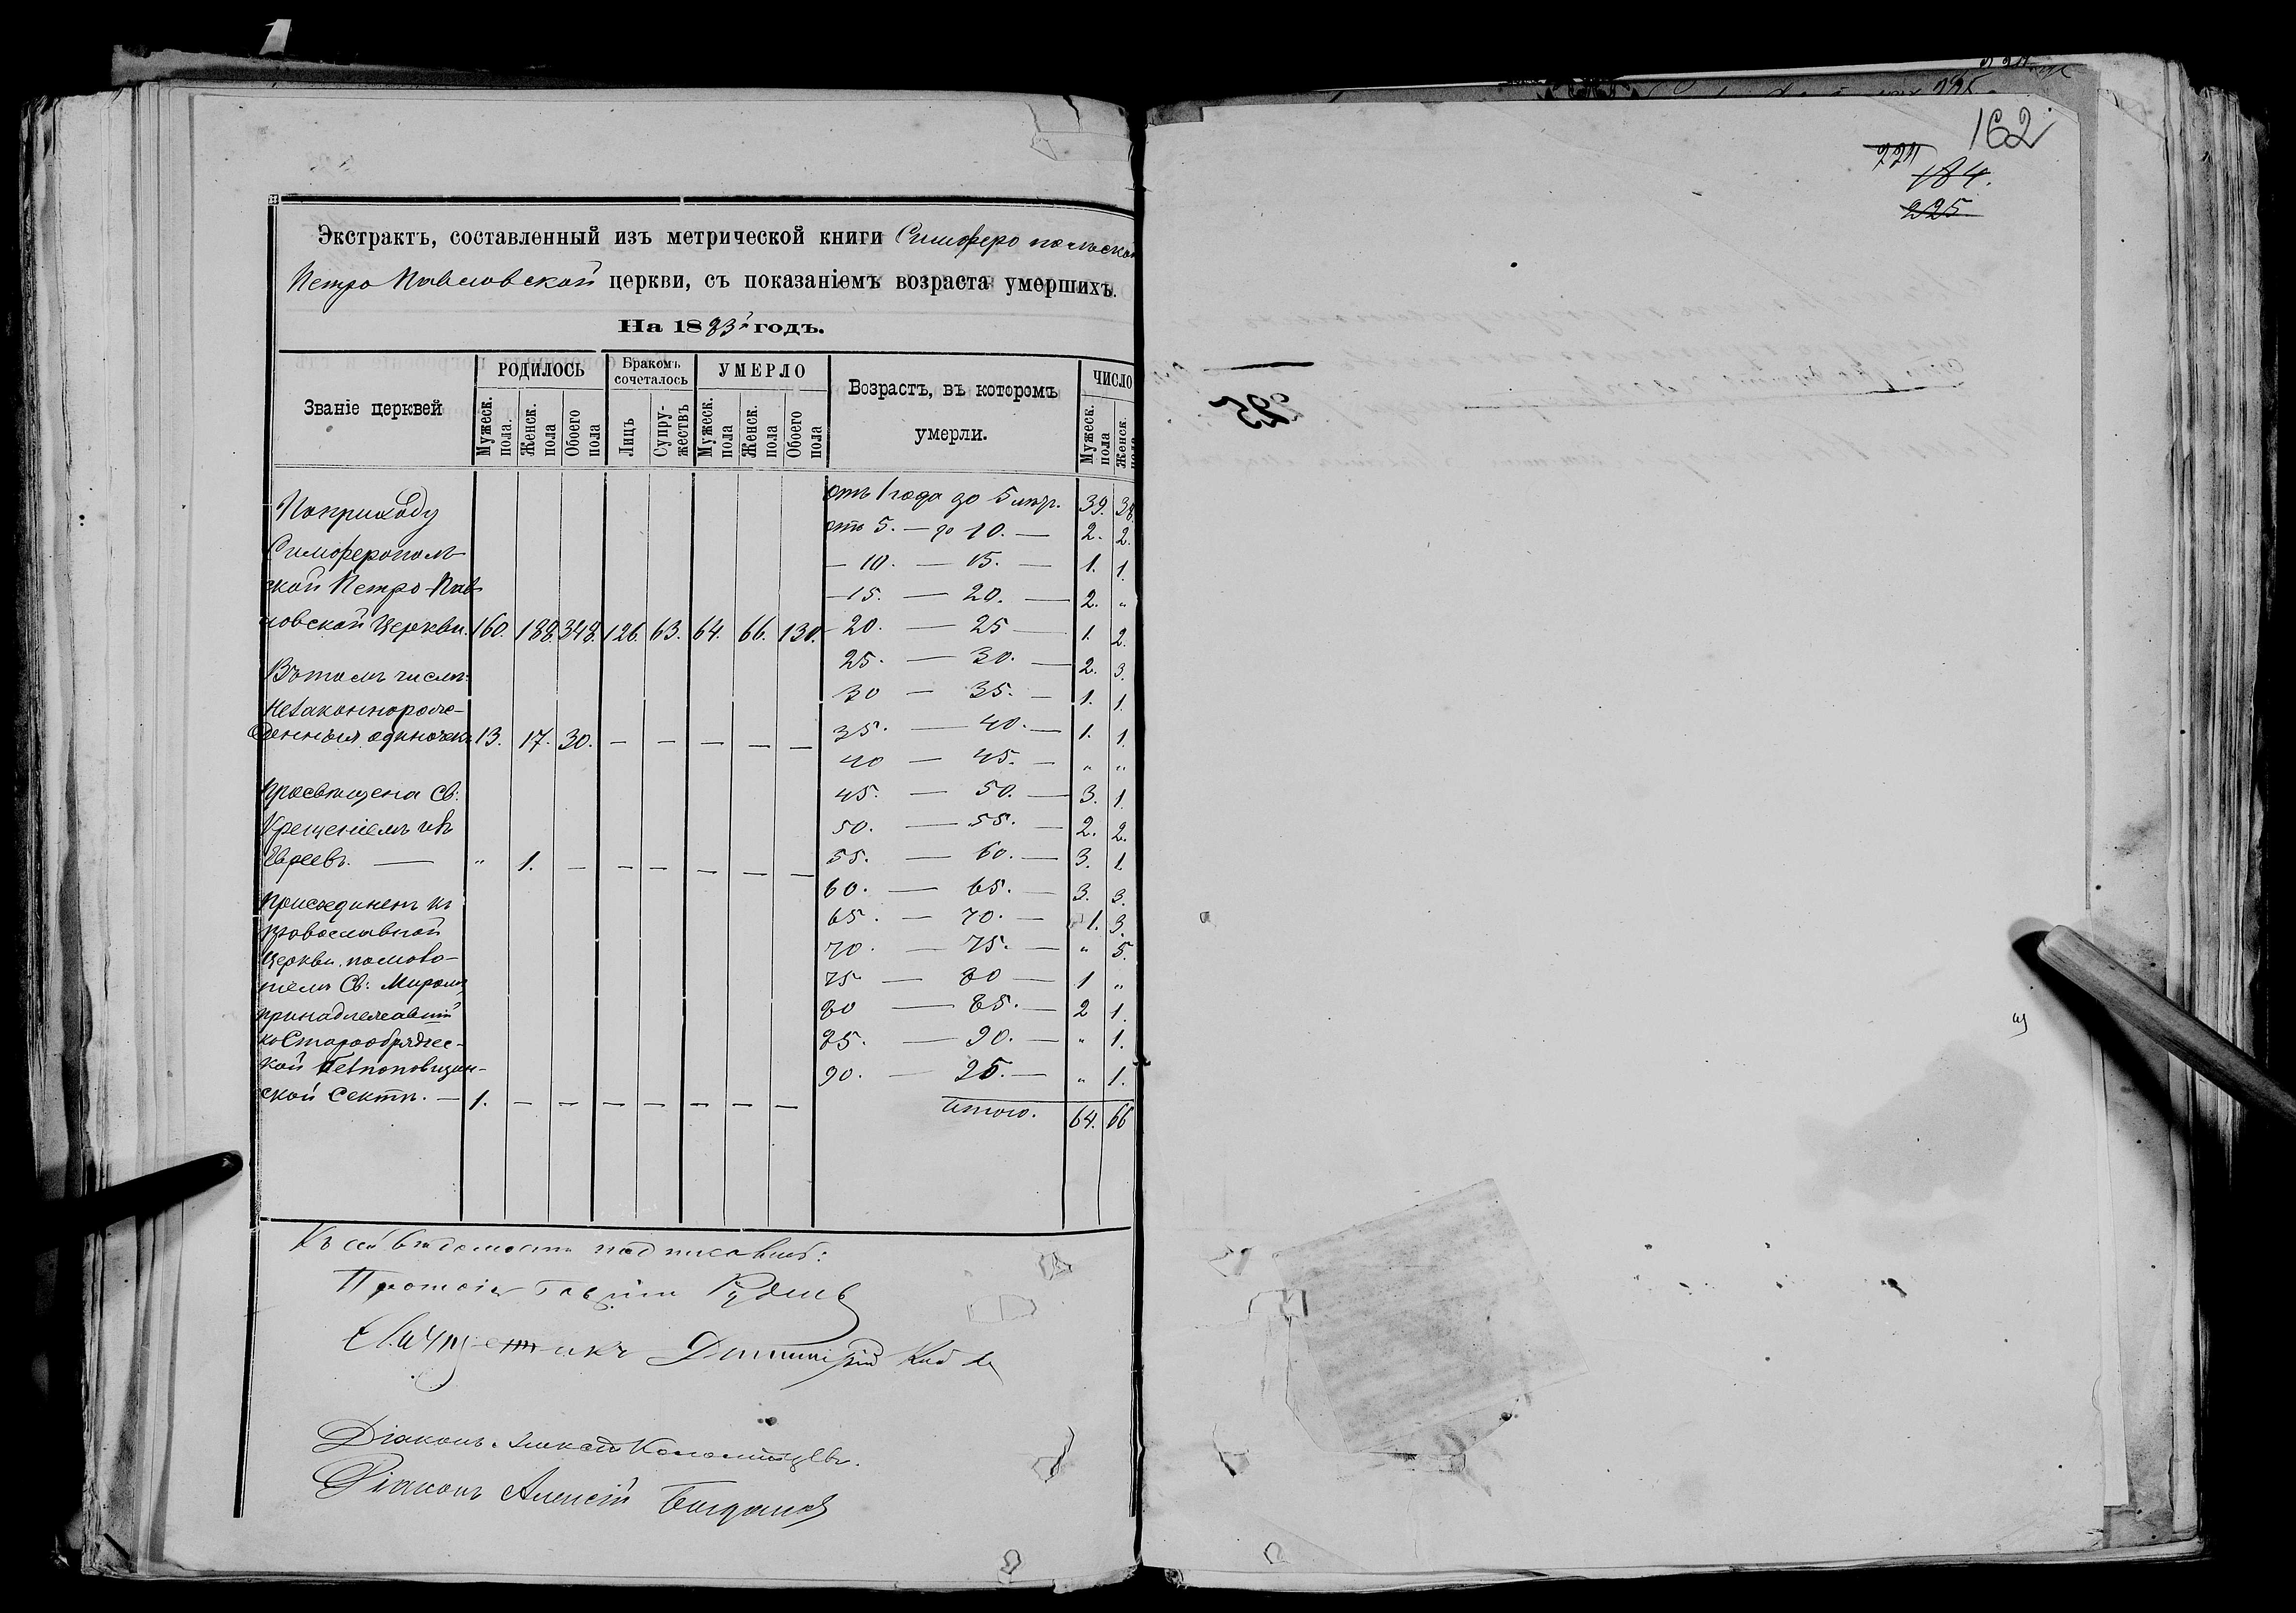 Экстрактъ, составленный изъ метрической книги Симферопольской
Петро Павловской церкви, съ показаніемъ возраста умершихъ.
На 1883й годъ.
Званіе церквей
РОДИЛОСЬ
Мужеск. пола.
Женск. пола
Обоего пола
Бракомъ сочеталось
Лицъ
Супружествъ
УМЕРЛО
Мужеск. пола
Женск. пола
Обоего пола
Возрастъ, въ которомъ
умерли.
ЧИСЛО
Мужеск. пола
Женск. пола
По приходу
Симферополь-
ской Петро-Пав-
ловской Церкви. 160. 188. 348. 126. 63. 64. 66. 130.
Въ томъ числѣ:
Незаконнорож-
денныя одиночки 13. 17. 30. — — — — —
Просвѣщена Св:
Крещеніемъ изъ
Евреевъ. — „ 1. — — — — — —
Присоединенъ къ
православной
Церкви
Св: Мѵромъ,
принадлежавшій
къ Старообрядчес-
кой Безпоповщин-
ской Сектѣ. — 1. — — — — — — —
отъ 1 года до 5 лѣтъ. 39. 38.
отъ 5. — до 10. — 2. 2.
— 10. — 15. — 1. 1.
— 15. — 20. — 2. „
20. — 25 — 1. 2.
25. — 30. — 2. 3.
30 — 35. — 1. 1.
35. — 40. — 1. 1.
40 — 45. — „ „
45. — 50. — 3. 1.
50. — 55. — 2. 2.
55. — 60. — 3. 1
60. — 65. — 3. 3.
65. — 70. — 1. 3.
70. — 75. — „ 5.
75 — 80 — 1 „
80 — 85. — 2 1.
85. — 90. — „ 1.
90. — 95. — „ 1.
Итого. 64. 66
Къ сей вѣдомости подписались:
Протоіерей Гавріилъ
Димитрій
Діаконъ Алексій Коломійцевъ.
Діаконъ Алексій Богданов
162
224
184.
225
225